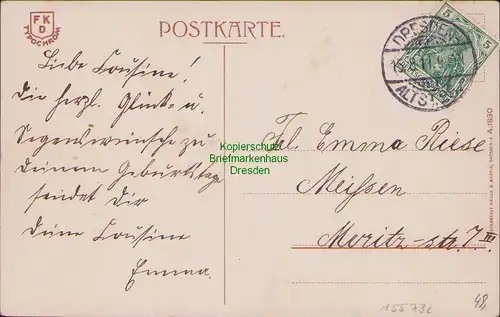 FK
D
TYPOCHROM
POSTKARTE.
DRESDEN
ALTST.
5
5
Liebe Cousine!
Die herzl. Glück- u.
Segenswünsche zu
Deinem Geburtstage
sendet Dir
Deine Cousine
Emma.
Kopierschutz
Briefmarkenhaus
Dresden
Frl. Emma Riese
Meissen
Moritz-str. 7. III
A.1830
15573c